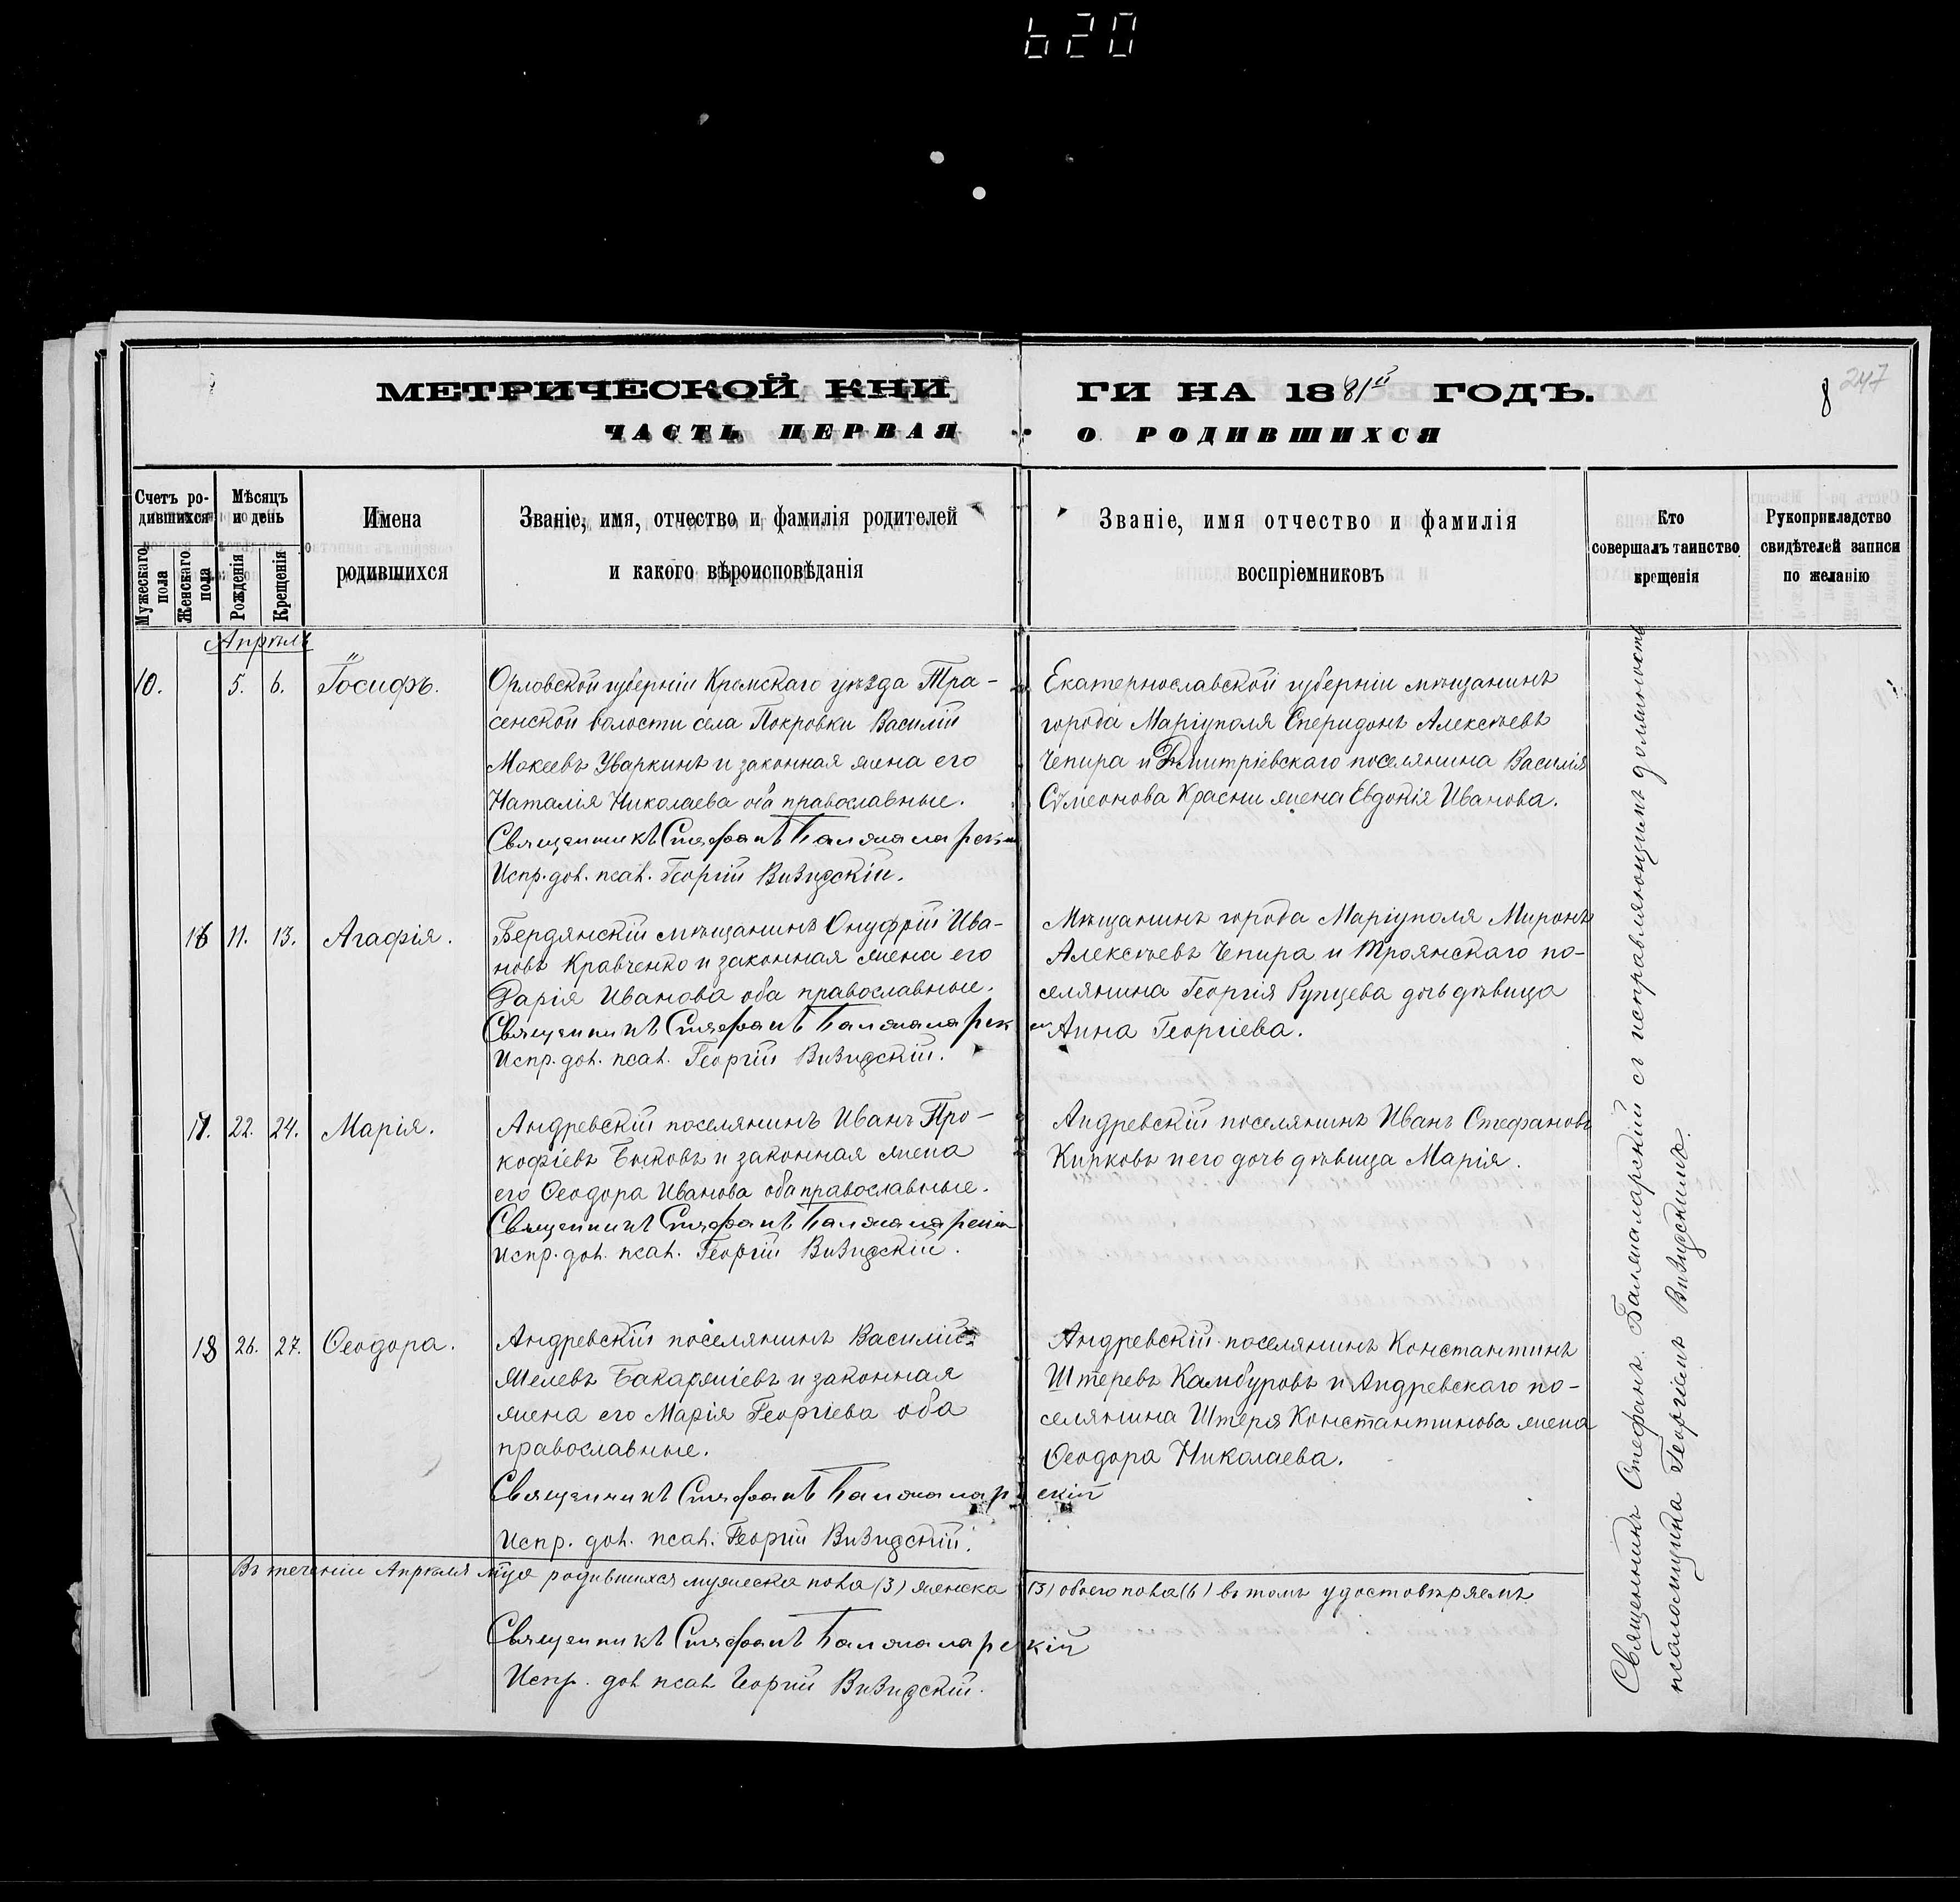 620
МЕТРИЧЕСКОЙ КНИ ГИ НА 1881й ГОДЪ.
8 247
ЧАСТЬ ПЕРВАЯ О РОДИВШИХСЯ
Счетъ ро-
дившихся
Мужескаго пола
Женскаго пола
Мѣсяцъ
и день
Рожденія
Крещенія
Имена
родившихся
Званіе, имя, отчество и фамилія родителей
и какого вѣроисповѣданія
Званіе, имя отчество и фамилія
воспріемниковъ
Кто
совершалъ таинство
крещенія
Рукоприкладство
свидѣтелей записи
по желанію
Апрѣль
10. 5. 6. Іосифъ.
Орловской губерніи Кромскаго уѣзда Тра-
сенской волости села Покровки Василій
Мокеевъ Уваркинъ и законная жена его
Наталія Николаева оба православные.
Священникъ Стефанъ Балжаларскій
Испр. дол. псал. Георгій Визирскій.
Екатернославской губерніи мѣщанинъ
города Маріуполя Спиридонъ Алексѣевъ
Чепира и Дмитріевскаго поселянина Василія
Сѵмеонова Красни жена Евдокія Иванова.
16 11. 13. Агафія.
Бердянскій мѣщанинъ Онуфрій Ива-
новъ Кравченко и законная жена его
Дарія Иванова оба православные.
Священникъ Стефанъ Балжаларскій
Испр. дол. псал. Георгій Визирскій.
Мѣщанинъ города Маріуполя Миронъ
Алексѣевъ Чепира и Троянскаго по-
селянина Георгія Рупцева дочь дѣвица
Анна Георгіева.
17. 22. 24. Марія.
Андревскій поселянинъ Иванъ Про-
кофіевъ Быковъ и законная жена
его Ѳеодора Иванова оба православные.
Священникъ Стефанъ Балжаларскій
Испр. дол. псал. Георгій Визирскій.
Андревскій поселянинъ Иванъ Стефановъ
Кирковъ и его дочь дѣвица Марія.
18 26. 27. Ѳеодора.
Андревскій поселянинъ Василій
Желевъ Бакаржіевъ и законная
жена его Марія Георгіева оба
православные.
Священникъ Стефанъ Балжаларскій
Испр. дол. псал. Георгій Визирскій.
Андревскій поселянинъ Константинъ
Штеревъ Камбуровъ и Андревскаго по-
селянина Штеря Константинова жена
Ѳеодора Николаева.
Въ теченіи Апрѣля м-ца родившихся мужеска пола (3) женска (3) обоего пола (6) въ томъ удостовѣряемъ
Священникъ Стефанъ Балжаларскій
Испр. дол псал Георгій Визирскій.
Священникъ Стефанъ Балжаларскій съ исправляющимъ должность
псаломщика Георгіемъ Визирскимъ.